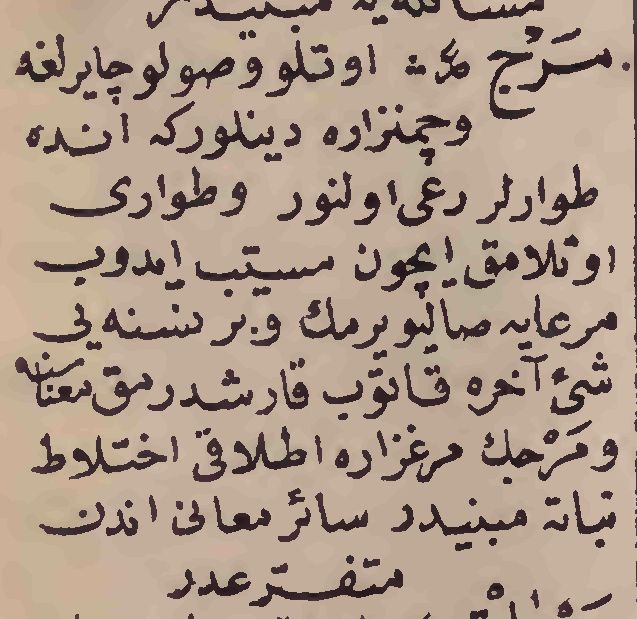 مسافه‌یه مبنیدر
مَرْج اوتلو و صولو چایرلغه
و چمنزاره دینلورکه انده
طوارلر رعی اولنور و طواری
اوتلامق ایچون مسیّب ایدوب
مرعایه صالیویرمك و بر نسنه یی
شئ آخره قاتوب قارشدرمق معناسنه
و مَرْجك مرغزاره اطلاقی اختلاط
نباته مبنیدر سائر معانی اندن
متفرعدر